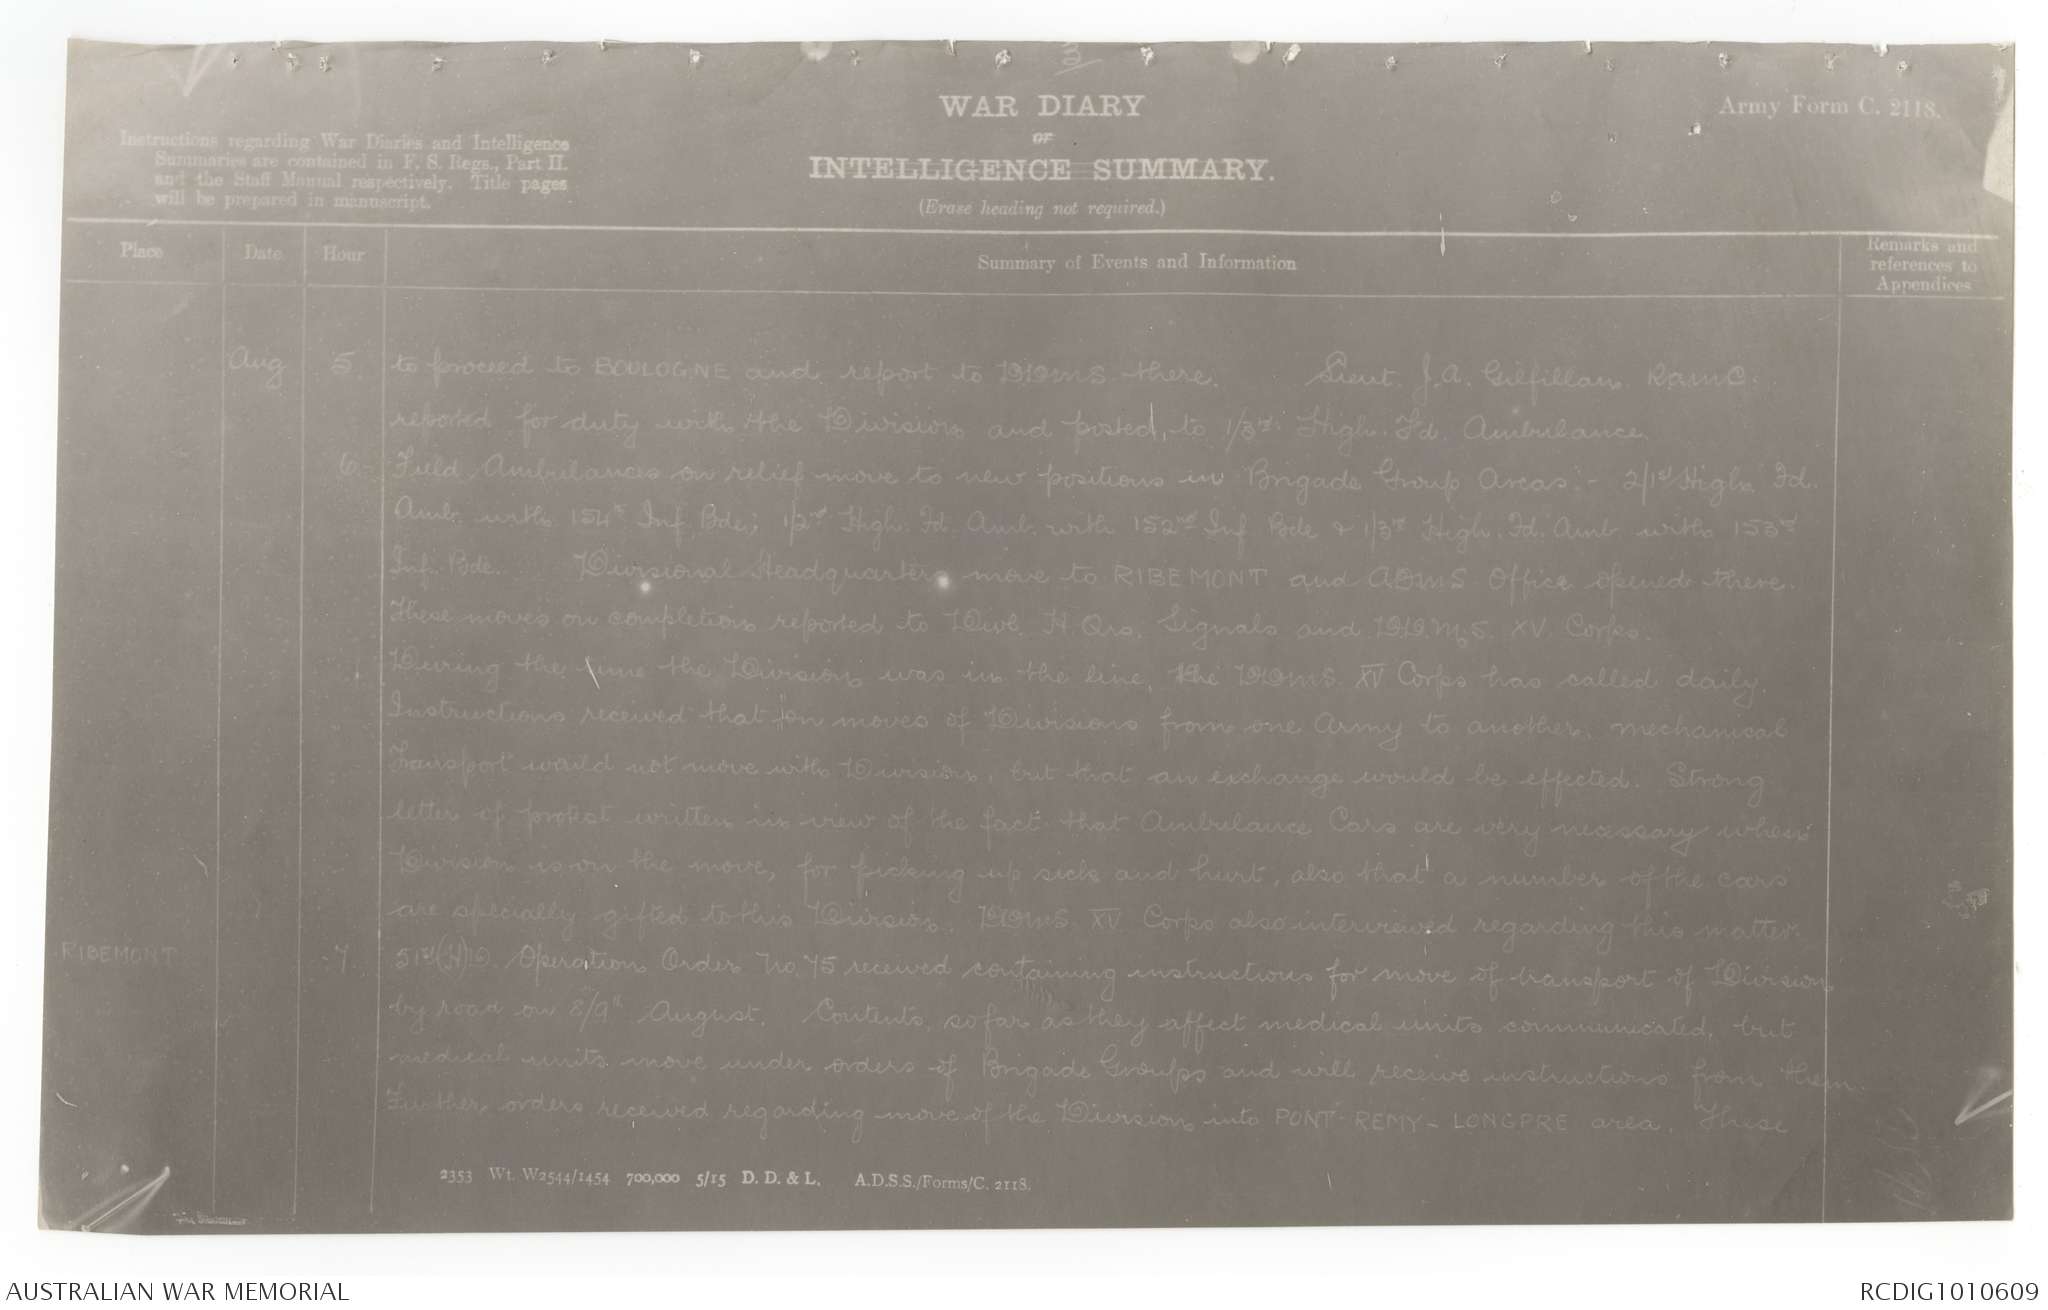 3
WAR DIARY
OF
INTELLIGENCE SUMMARY.
(Erase heading not required.)
Army Form C. 2118.
Instructions regarding War Diaries and Intelligence
Summaries are contained in F. S. Regs., Part II.
and the Staff Manual respectively. Title pages
will be prepared in manuscript.
Place Date Hour Summary of Events and Information Remarks and references to Appendices
Aug 5. to proceed to BOULOGNE and report to DDMS there. Lieut. J.A. Gilfillan RAMC.
reported for duty with the Division and posted, to 1/3rd High. Fd. Ambulance.
6. Field Ambulances on relief move to new positions in Brigade Group Areas:- 2/1st High. Fd.
Amb. with 154th Inf. Bde; 1/2nd High. Fd. Amb. with 152nd Inf Bde & 1/3rd High. Fd. Amb. with 153rd
Inf. Bde. Divisional Headquarters move to RIBEMONT and ADMS Office opened there.
These moves on completion reported to Divl. H. Qrs. Signals and D.D.M.S. XV. Corps.
During the time the Division was in the line, the DDMS. XV Corps has called daily.
Instructions received that on moves of Divisions from one Army to another, mechanical
Transport would not move with Division, but that an exchange would be effected. Strong
letter of protest written in view of the fact that Ambulance Cars are very necessary when
Division is on the move, for picking up sick and hurt, also that a number of the cars
are specially gifted to this Division. DDMS. XV Corps also interviewed regarding this matter.
RIBEMONT 7. 51st (H) D. Operation Order No. 75 received containing instructions for move of transport of Division
by road on 8/9th August. Contents, so far as they affect medical units communicated, but
medical units move under orders of Brigade Groups and will receive instructions from them.
Further orders received regarding move of the Division into PONT-REMY-LONGPRE area. These
2353 Wt. W2544/1454 700,000 5/15 D. D. & L. A.D.S.S./Forms/C. 2118.
AUSTRALIAN WAR MEMORIAL
RCDIG1010609